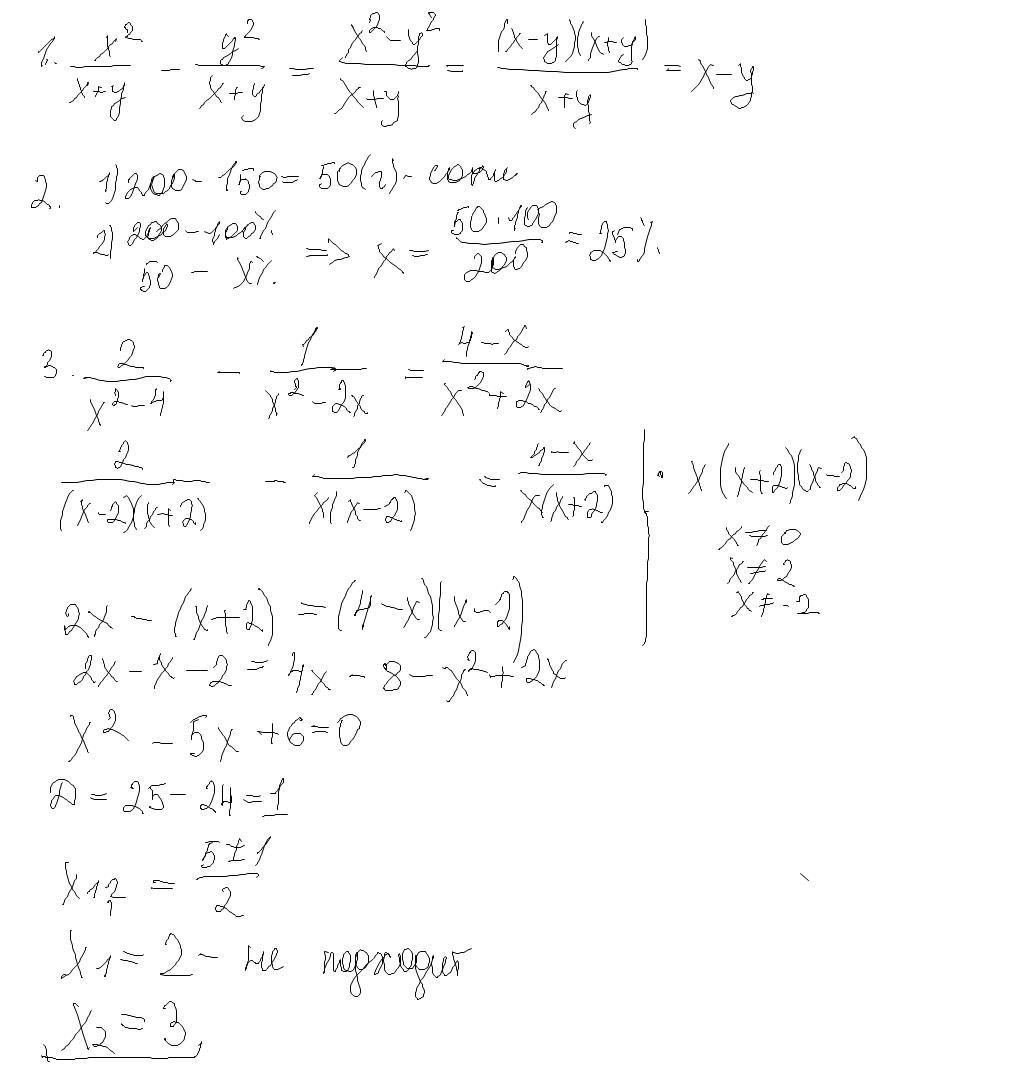 1. x²/(x+y) - y²/(x+y) = (x²-y²)/(x+y) = (x-y)(x+y)/(x+y) = x-y
2. 1) 200 - 150 = 50 (г) - соли
2) 200 - 100%
50 - x% => x = (50·100)/200 = 25%
3. 2/(x²-4) - 1/(x²-2x) = (4-x)/(x²+2x)
2/((x-2)(x+2)) - 1/(x(x-2)) = (4-x)/(x(x+2)) | · x(x+2)(x-2)
x≠0
x≠2
x≠-2
2x - (x+2) = (4-x)(x-2)
2x - x - 2 = 4x - 8 - x² + 2x
x² - 5x + 6 = 0
D = 25 - 24 = 1
x1,2 = (5±1)/2
x1 = 2 - не подходит
x2 = 3